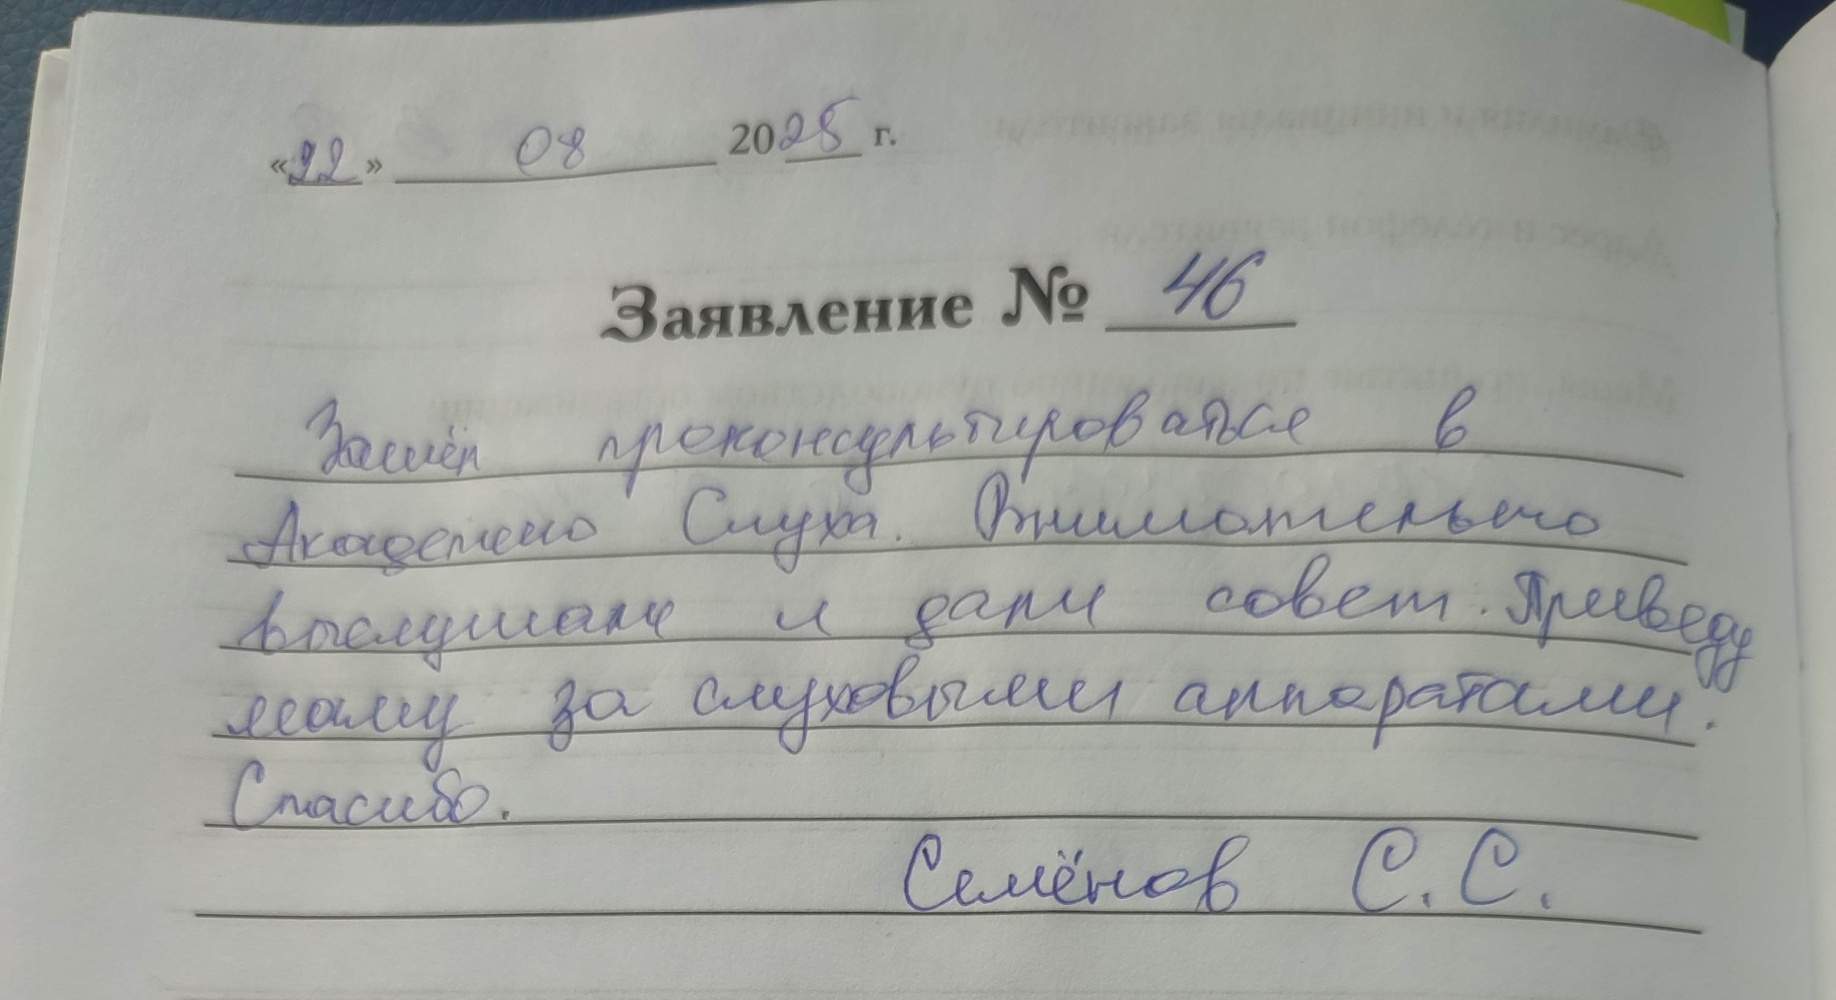 «22» 08 2025 г.
Заявление № 46
Зашёл проконсультироваться в
Академию Слуха. Внимательно
выслушали и дали совет. Приведу
маму за слуховыми аппаратами.
Спасибо.
Семёнов С.С.